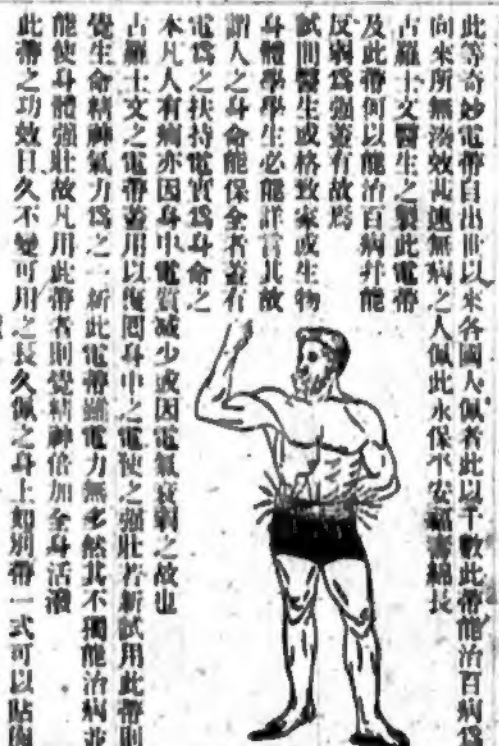 此等奇妙電帶自出世以來各國人佩者此以千數此帶能治百病為
向來所無湊效甚速無病之人佩此永保平安福壽綿長
古羅士文醫生之製此電帶
及此帶何以能治百病幷能
反弱為强蓋有故焉
試問醫生或格致家或生物
身體學學生必能詳言其故
謂人之身命能保全者蓋有
電為之扶持電實為身命之
本凡人有病亦因身中電質減少或因電氣衰弱之故也
古羅士文之電帶蓋用以復囘身中之電使之强壯若新試用此帶則
覺生命精神氣力為之一新此電帶雖電力無多然其不獨能治病並
能使身體强壯故凡用此帶者則覺精神倍加全身活潑
此帶之功效日久不變可用之長久佩之身上如別帶一式可以貼